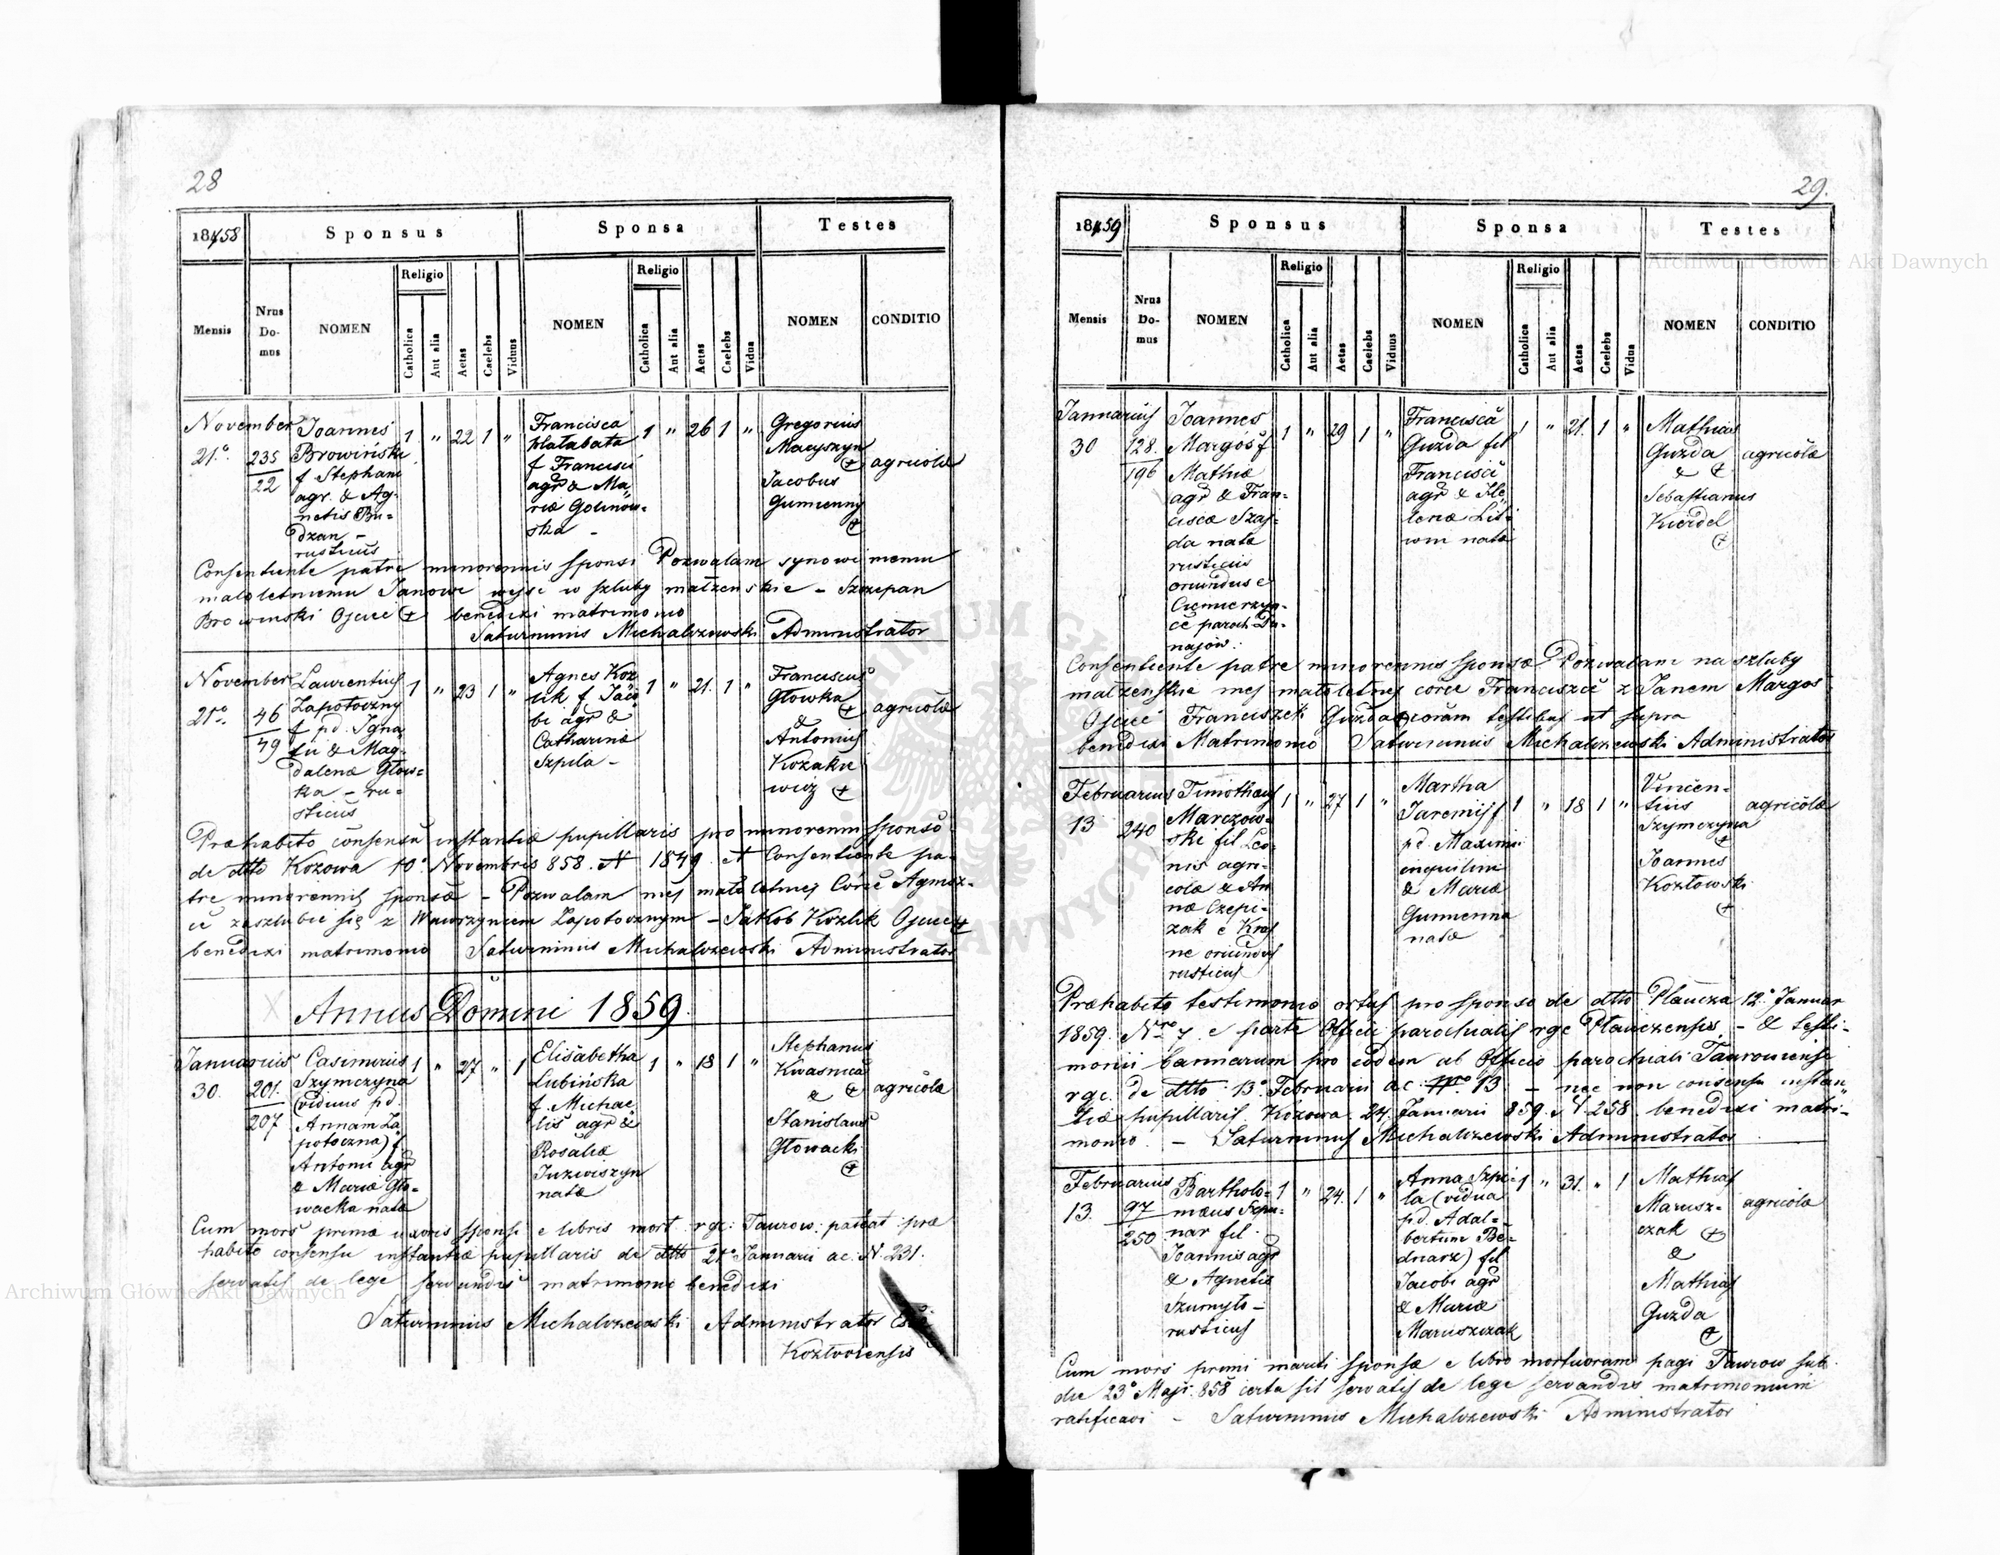 28
1858
Sponsus
Sponsa
Testes
Mensis
Nrus Do-mus
NOMEN
Religio
Catholica
Aut alia
Aetas
Caelebs
Viduus
NOMEN
Religio
Catholica
Aut alia
Aetas
Caelebs
Vidua
NOMEN
CONDITIO
November
21º
235
22
Joannes
Browiński
f Stephani
agr. & Ag-
netis Bu-
dzan -
rusticus
1 " 22 1 "
Francisca
f Francisci
agr & Ma
riæ Golinow-
ska -
1 " 26 1 "
Gregorius
Macyszyn
Jacobus
Gumienny
agricolæ
Consentiente patre minorennis sponsi Pozwalam synowi memu
małoletniemu Janowi wejść w szluby małżenskie - Szczepan
Browinski Ojciec benedixi matrimonio
Saturninus Michalczewski Administrator
November
21º
46
79
Laurentius
Zapotoczny
f pd. Igna
tii & Mag-
dalenæ Głow-
ka - ru-
sticus
1 " 23 1 "
Agnes Koz
lik f Jaco
bi agr &
Catharinæ
Szpila -
1 " 21. 1 "
Franciscus
Głowka
&
Antonius
Kozakie
wicz
agricolæ
Præhabito consensu instantiæ pupillaris pro minorenni sponso
de dtto Kozowa 10º Novembris 858. N 1849. & Consentiente pa-
tre minorennis sponsæ - Pozwalam mej małoletniej Córce Agniesz-
ce zaszlubić się z Wawrzyncem Zapotocznym - Jakob Kozlik Ojciec
benedixi matrimonio Saturninus Michalczewski Administrator
Annus Domini 1859.
Januarius
30.
201.
207
Casimirus
Szymczyna
(viduus pd.
Annam Za
potoczna) f
Antoni agr
& Mariæ Gło-
wacka natæ
1 " 27 " 1
Elisabetha
Lubińska
f. Michae
lis agr &
Rosaliæ
Juzwiszyn
natæ
1 " 18 1 "
Stephanus
Kwasnica
&
Stanislaus
Głowacki
agricolæ
Cum mors primæ uxoris sponsi e libris mort. rgc: Taurow: pateat præ
habito consensu instantiæ pupillaris de dtto 21º Januarii ac. N. 231.
servatis de lege servandis matrimonio benedixi
Saturninus Michalczewski Administrator
Kozłoviensis
29.
1859
Sponsus
Sponsa
Testes
Mensis
Nrus Do-mus
NOMEN
Religio
Catholica
Aut alia
Aetas
Caelebs
Viduus
NOMEN
Religio
Catholica
Aut alia
Aetas
Caelebs
Vidua
NOMEN
CONDITIO
Januarius
30
128.
196
Joannes
Margós f
Mathiæ
agr & Fran-
ciscæ Szaj-
da natæ
rusticus
oriundus e
Ciemierzyn-
ce paroch Du-
najów:
1 " 29 1 "
Francisca
Guzda fil
Francisci
agr & He-
lenæ Lit-
win natæ
1 " 21. 1 "
Mathias
Guzda
&
Sebastianus
Kierdel
agricolæ
Consentiente patre minorennis sponsæ Pozwalam na szluby
małżenskie mej małoletniej córce Franciszce z Janem Margos
Ojciec Franciszek Guzda coram testibus ut supra
benedixi Matrimonio Saturninus Michalczewski Administrator
Februarius
13
240
Timotheus
Marczow-
ski fil Leo-
nis agri-
colæ & An
næ Czepi-
zak e Kras
ne oriundus
rusticus
1 " 27 1 "
Martha
Jaremis f
pd. Maximi
inquilini
& Mariæ
Gumienna
natæ
1 " 18 1 "
Vincen-
tius
Szymczyna
Joannes
Kozłowski
agricolæ
Præhabito testimonio ortus pro sponso de dtto Płaucza 12º Januar
1859. Nro 7. e parte Officii parochialis rgc Płauczensis - & testi-
monii bannorum pro eodem ab Officio parochiali Tauroviensi
rgc. de dtto: 13º Februarii ac: Nro 13 - nec non consensu instan-
tiæ pupillaris Kozowa 24. Januarii 859. N. 258. benedixi matri-
monio. - Saturninus Michalczewski Administrator
Februarius
13.
97
250
Bartholo-
mæus Szpu-
nar fil.
Joannis agr
& Agnetis
Szumyło -
rusticus
1 " 24. 1 "
Anna Szpi-
la (vidua
pd. Adal-
bertum Be-
dnarz) fil
Jacobi agr
& Mariæ
Maruszczak
1 " 31. " 1
Mathias
Marusz-
czak
&
Mathias
Guzda
agricolæ
Cum mors primi mariti sponsæ e libro mortuorum pagi Taurow sub
die 23º Maji. 858 certa sit servatis de lege servandis matrimonium
ratificavi - Saturninus Michalczewski Administrator
Archiwum Główne Akt Dawnych
Archiwum Główne Akt Dawnych